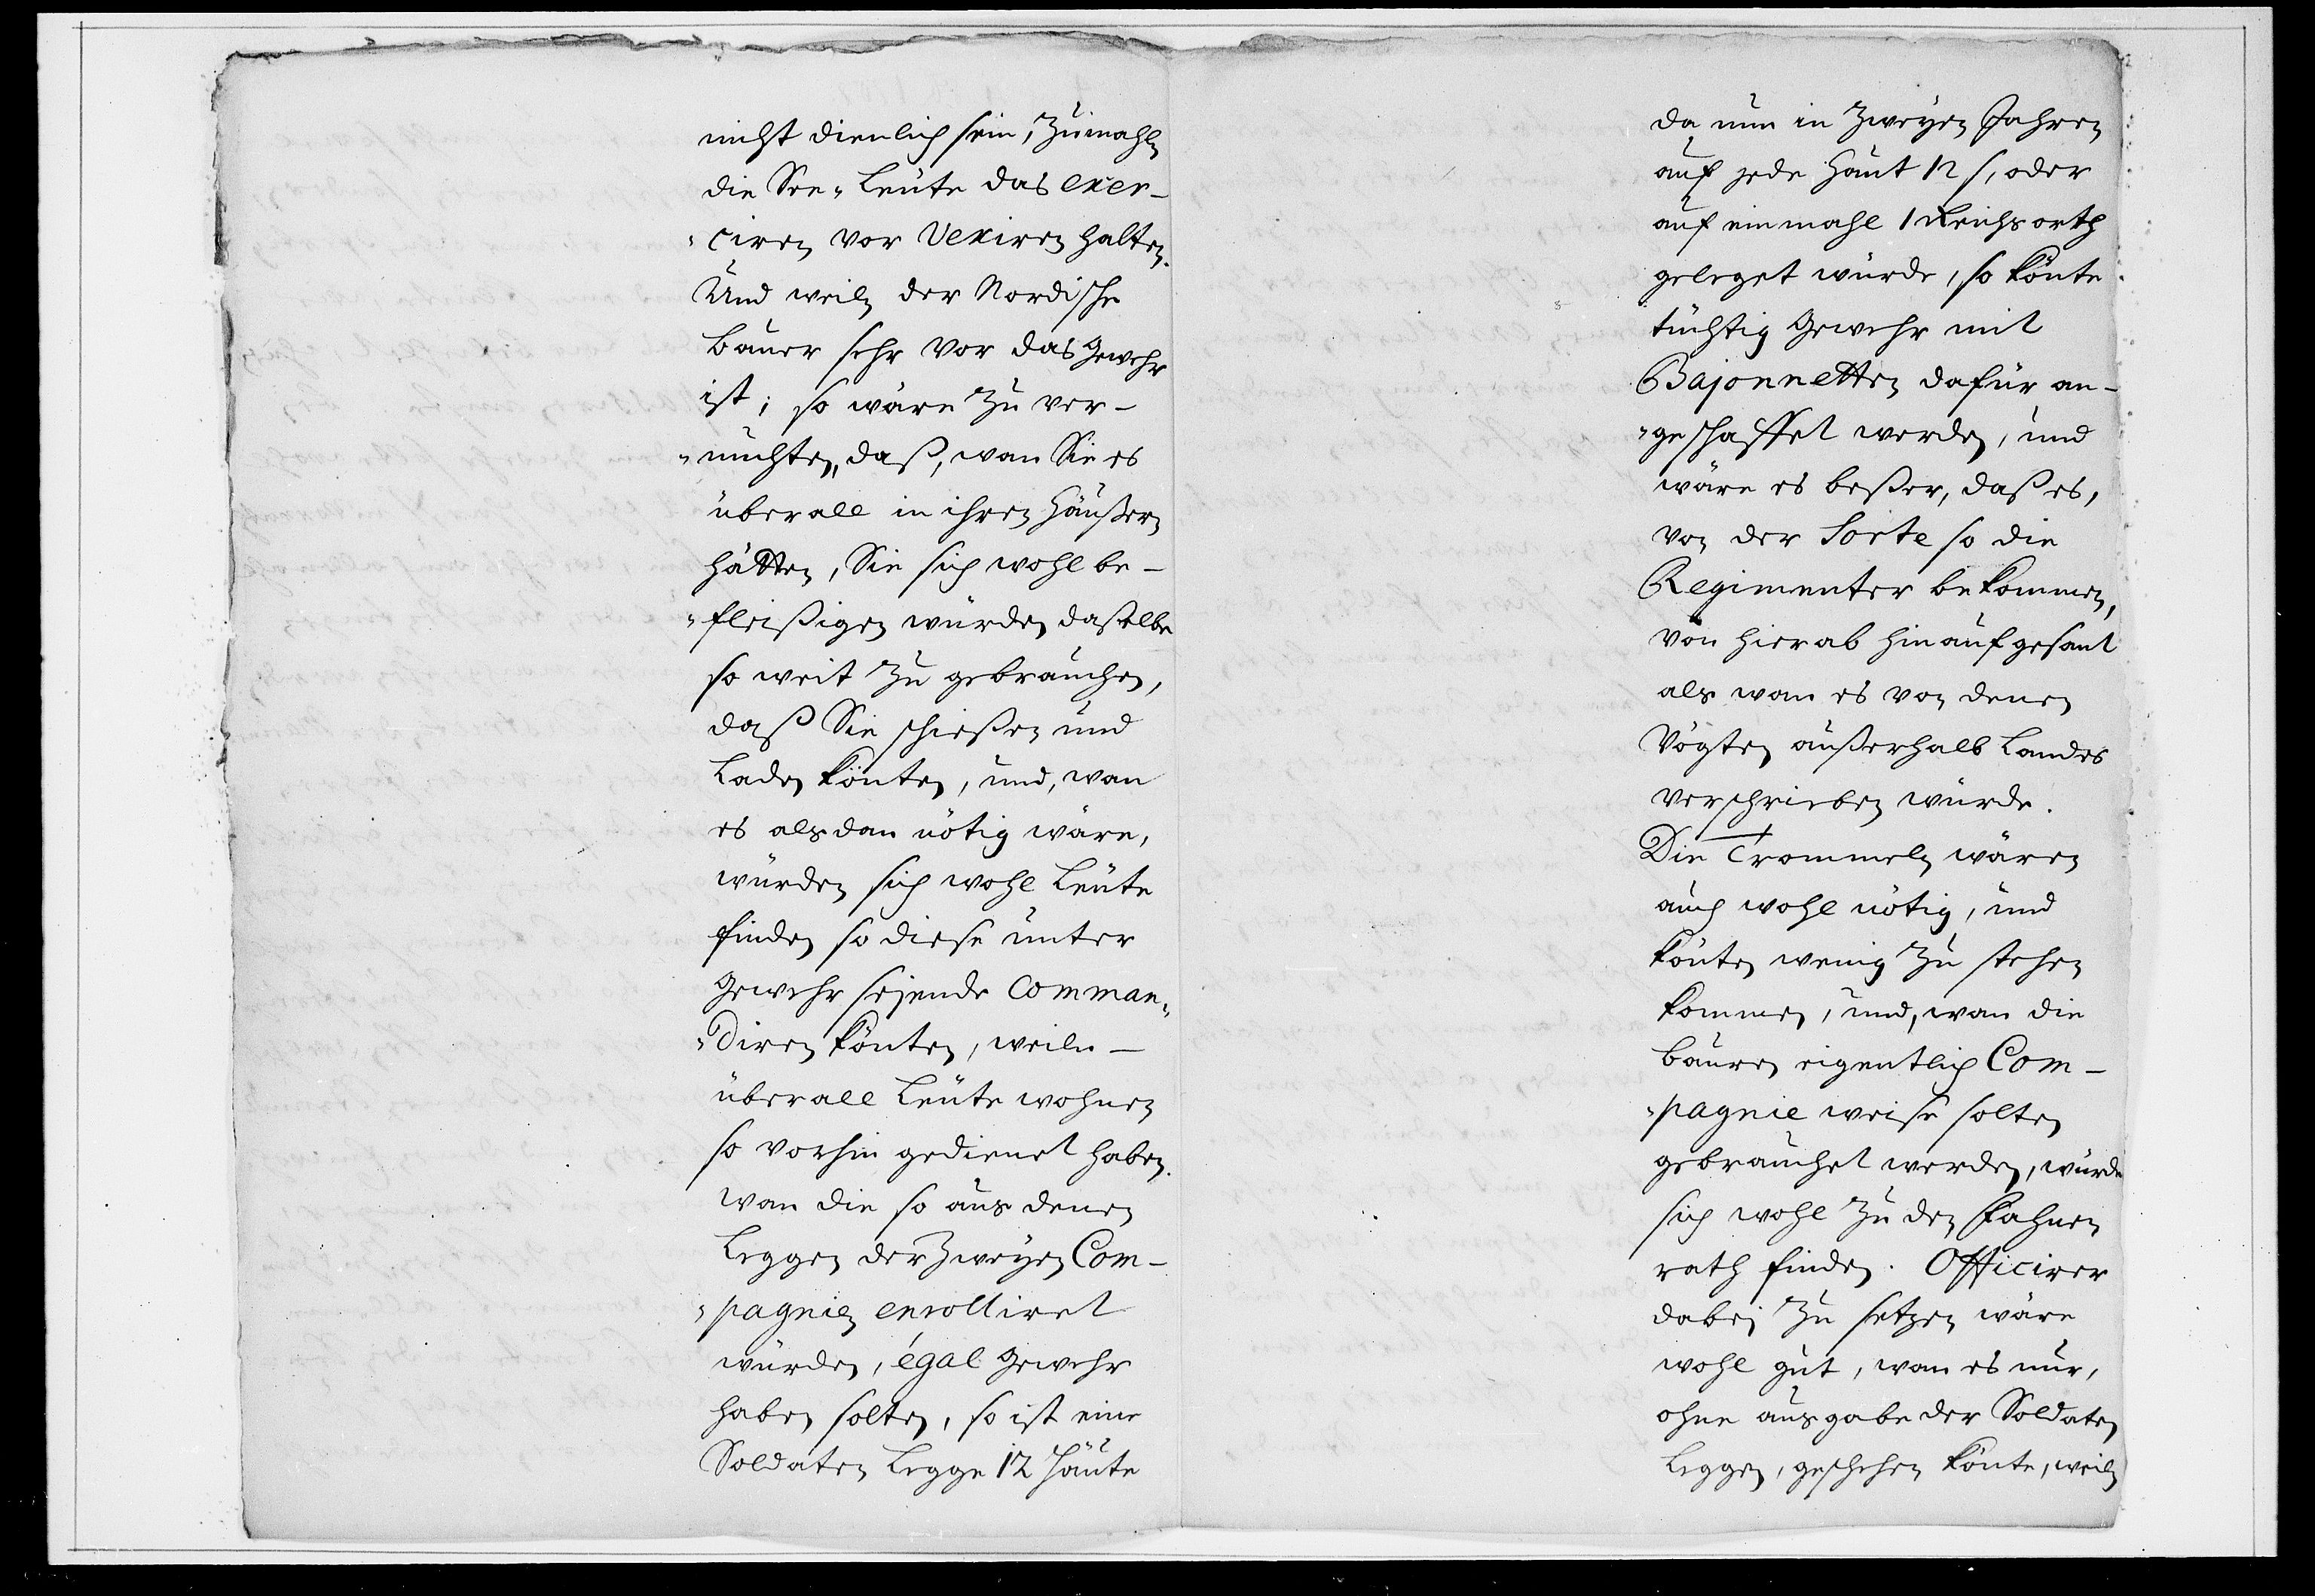 nicht dienlich sein, Zumahln
die See-Leute das exer-
-ciren vor Vexiren halten.
Und weiln der Nordische
Bauer sehr vor das Gewehr
ist; so wäre zu ver-
-muhten, daß, wan Sie es
überall in ihren Häußern
hätten, Sie sich wohl be-
-fleißigen würden daßelbe
so weit zu gebrauchen,
daß Sie schießen und
Laden könten, und, wan
es alsdan nötig wäre,
würden sich wohl Leute
finden so diese unter
Gewehr sejende Comman-
-diren könten, weiln -
überall Leute wohnen
so vorhin gedienet haben.
wan die so aus denen
Leggen der Zweyen Com-
-pagnien enrolliret
würden, égal Gewehr
haben solten, so ist eine
Soldaten Legge 12 Häute
da nun in Zweyen Jahren
auf jede Haut 12 s, oder
auf einmahl 1 Reichsorth
geleget würde, so könte
tüchtig Gewehr mit
Bajonnetten dafür an-
-geschaffet werden, und
wäre es beßer, daß es,
von der Sorte so die
Regimenter bekommen,
von hier ab hinauf gesant
als wan es von denen
Vögten außerhalb Landes
verschrieben würde.
Die Trommeln wären
auch wohl nötig, und
könten wenig zu stehen
kommen, und, wan die
Bauren eigentlich Com-
-pagnie weise solten
gebrauchet werden, würde
sich wohl zu den Fahnen
rath finden. Officirer
dabej zu setzen wäre
wohl gut, wan es nur,
ohne ausgabe der Soldaten
Leggen, geschehen könte, weiln